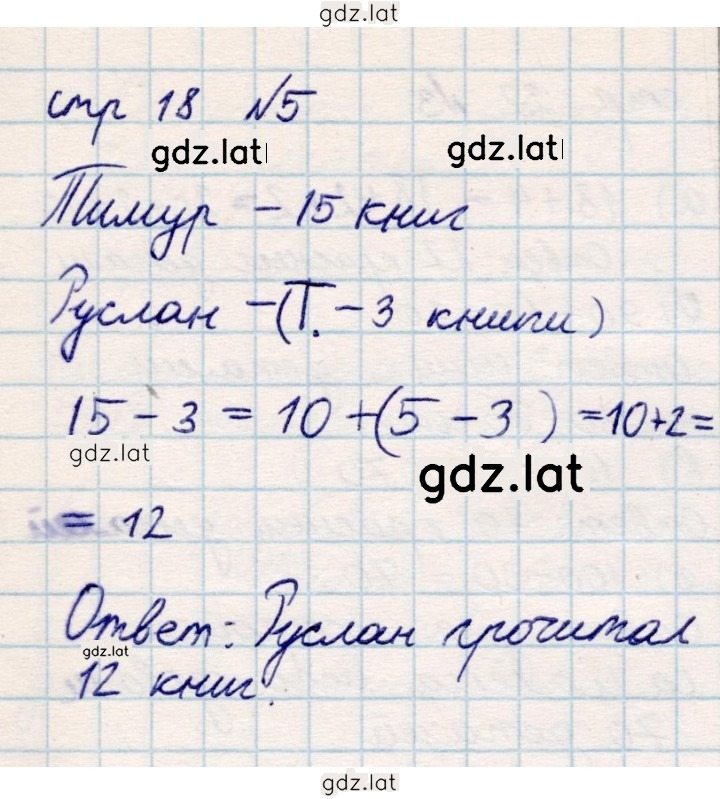 gdz.lat
стр 18 №5
gdz.lat gdz.lat
Тимур – 15 книг
Руслан – (Т. – 3 книги)
15 – 3 = 10 + (5 – 3) = 10 + 2 =
gdz.lat gdz.lat
= 12
Ответ: Руслан прочитал
gdz.lat
12 книг.
gdz.lat